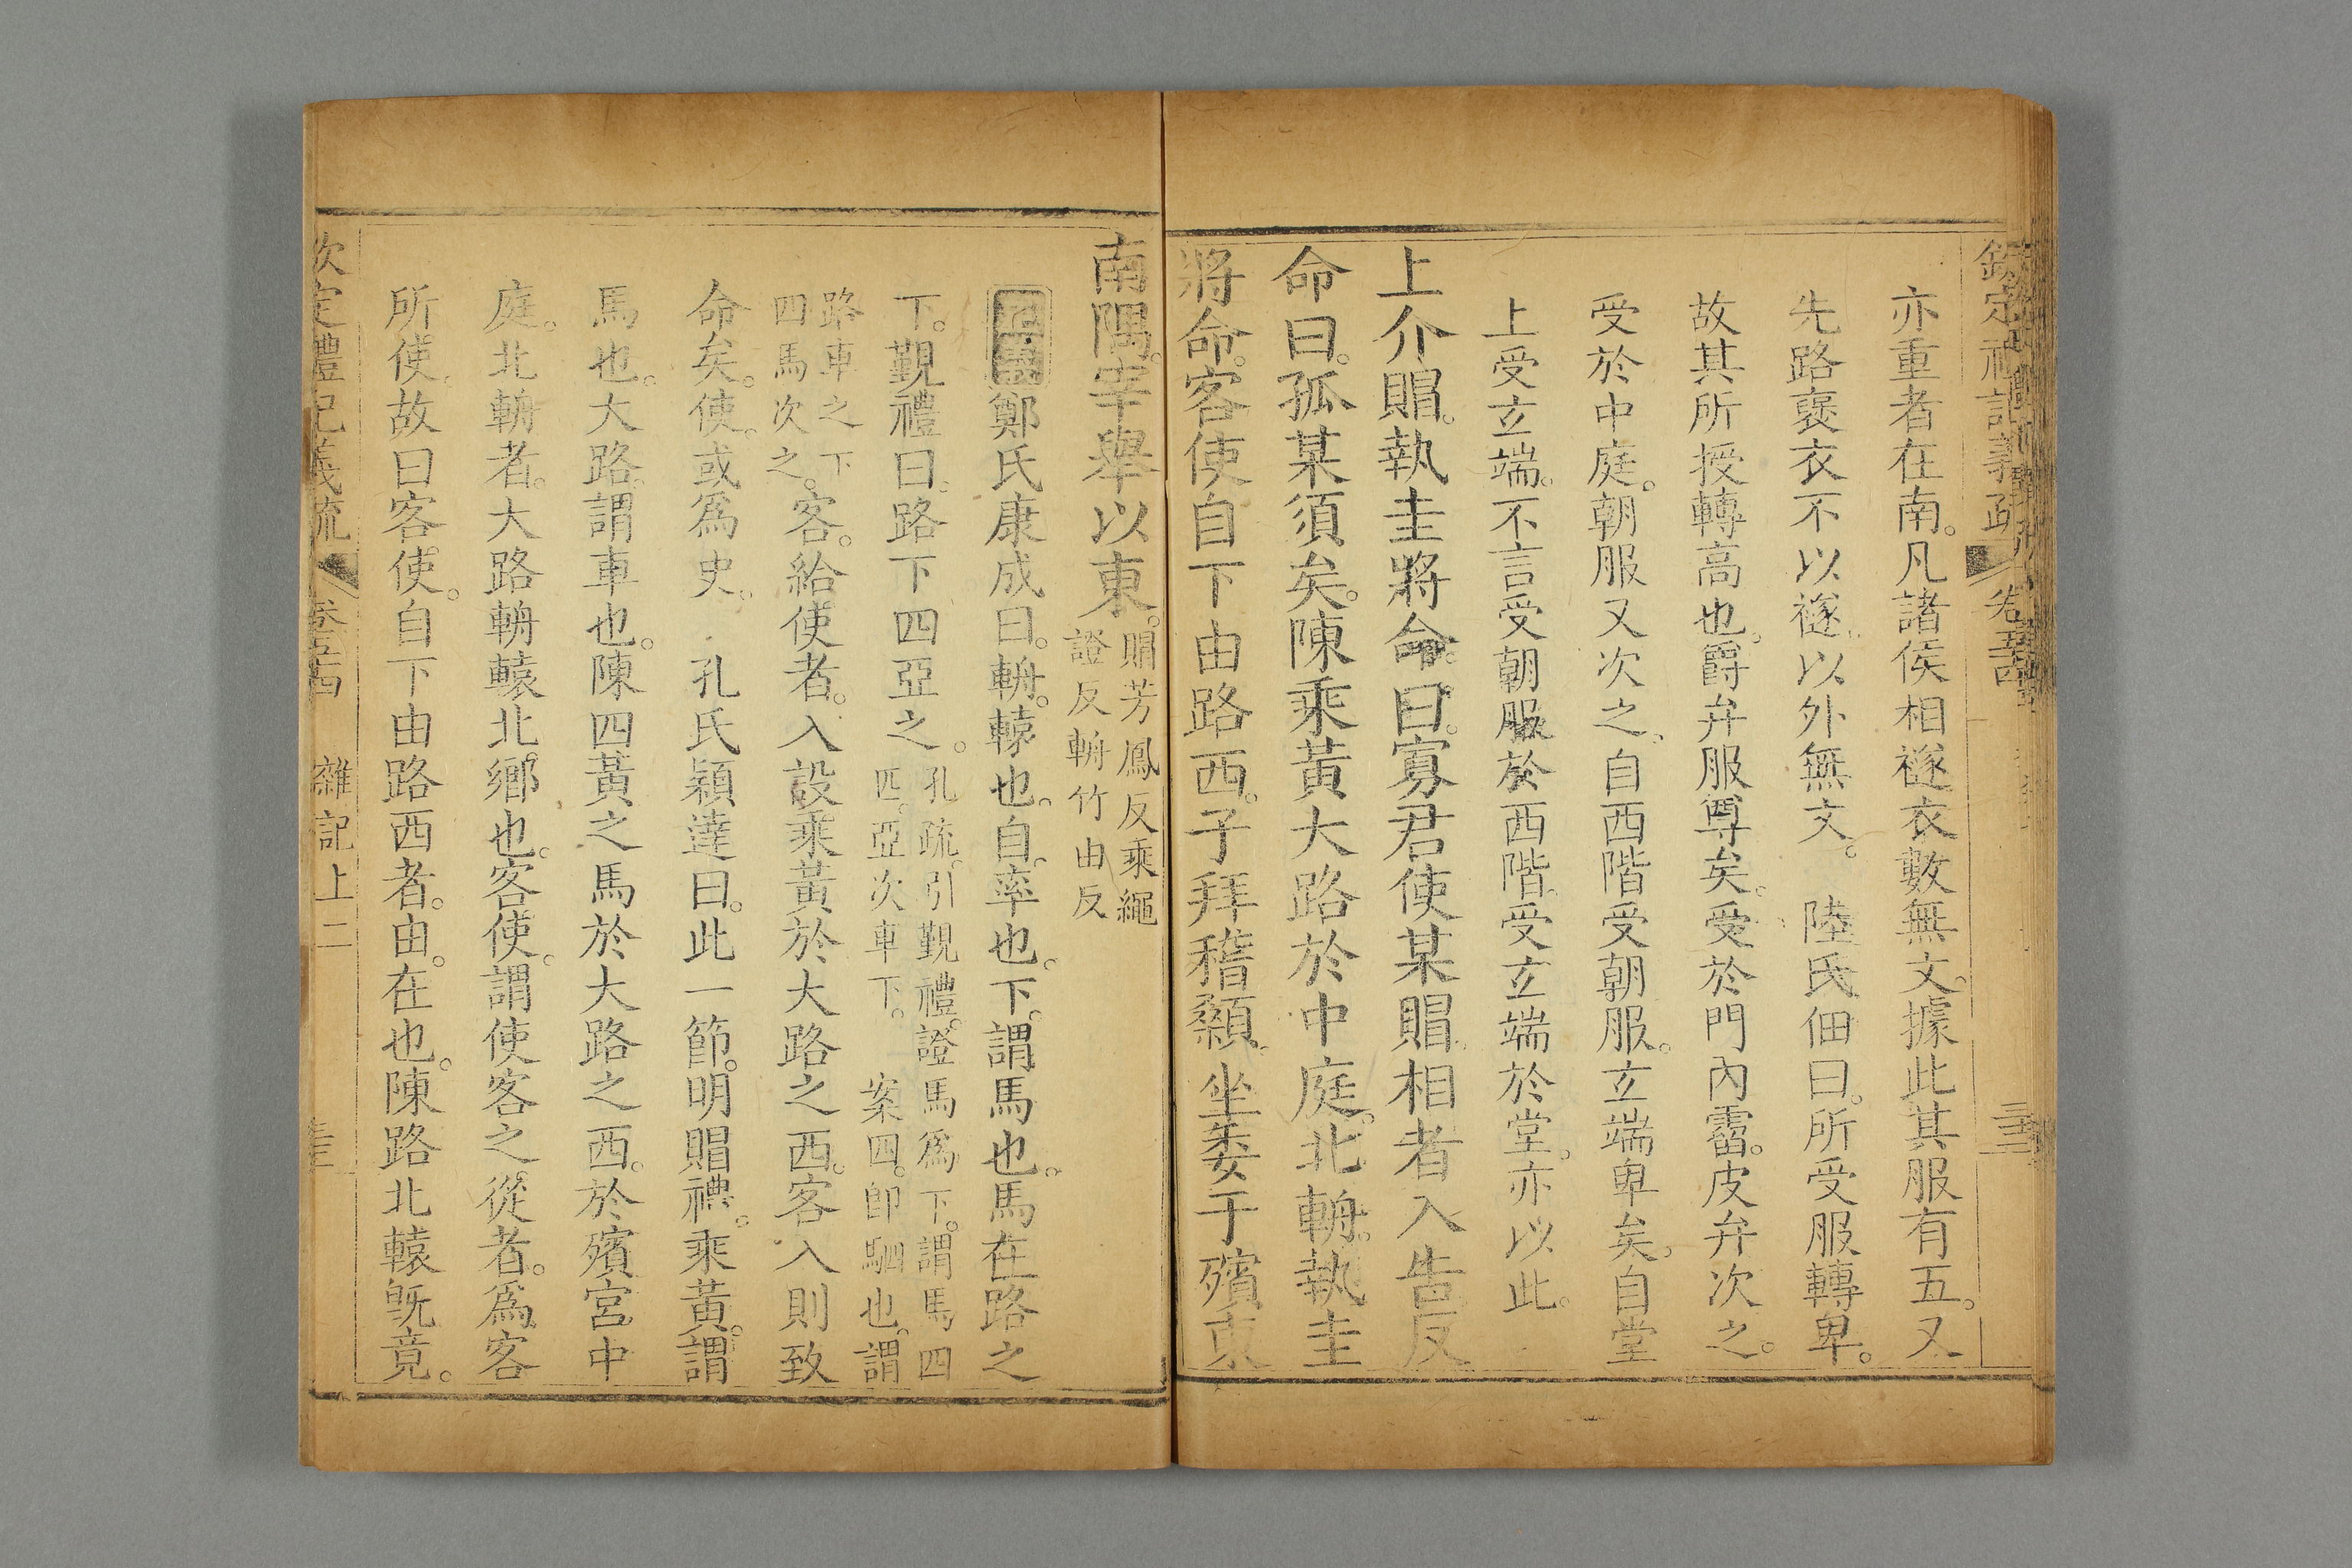 欽定禮記義疏 卷五十四
亦重者在南。凡諸侯相襚衣數無文。據此其服有五。又
先路褒衣不以襚。以外無文。 陸氏佃曰。所受服轉卑。
故其所授轉高也。爵弁服尊矣。受於門內霤。皮弁次之。
受於中庭。朝服又次之。自西階受朝服。玄端卑矣。自堂
上受玄端。不言受朝服於西階。受玄端於堂。亦以此。
上介賵。執圭將命。曰。寡君使某賵。相者入告。反
命曰。孤某須矣。陳乘黃大路於中庭。北輈。執圭
將命。客使自下由路西。子拜稽顙。坐委于殯東
南隅。宰舉以東。
賵芳鳳反乘繩
證反輈竹由反
正義鄭氏康成曰。輈。轅也。自。率也。下。謂馬也。馬在路之
下。覲禮曰。路下四亞之。
孔疏。引覲禮。證馬爲下。謂馬四
匹。亞次車下。 案四。卽駟也。謂
路車之下
四馬次之。
客。給使者。入設乘黃於大路之西。客入則致
命矣。使。或爲史。 孔氏穎達曰。此一節。明賵禮。乘黃。謂
馬也。大路。謂車也。陳四黃之馬於大路之西。於殯宮中
庭。北輈者。大路輈轅北鄉也。客使。謂使客之從者。爲客
所使。故曰客使。自下由路西者。由。在也。陳路北轅旣竟。
欽定禮記義疏 卷五十四 雜記上二